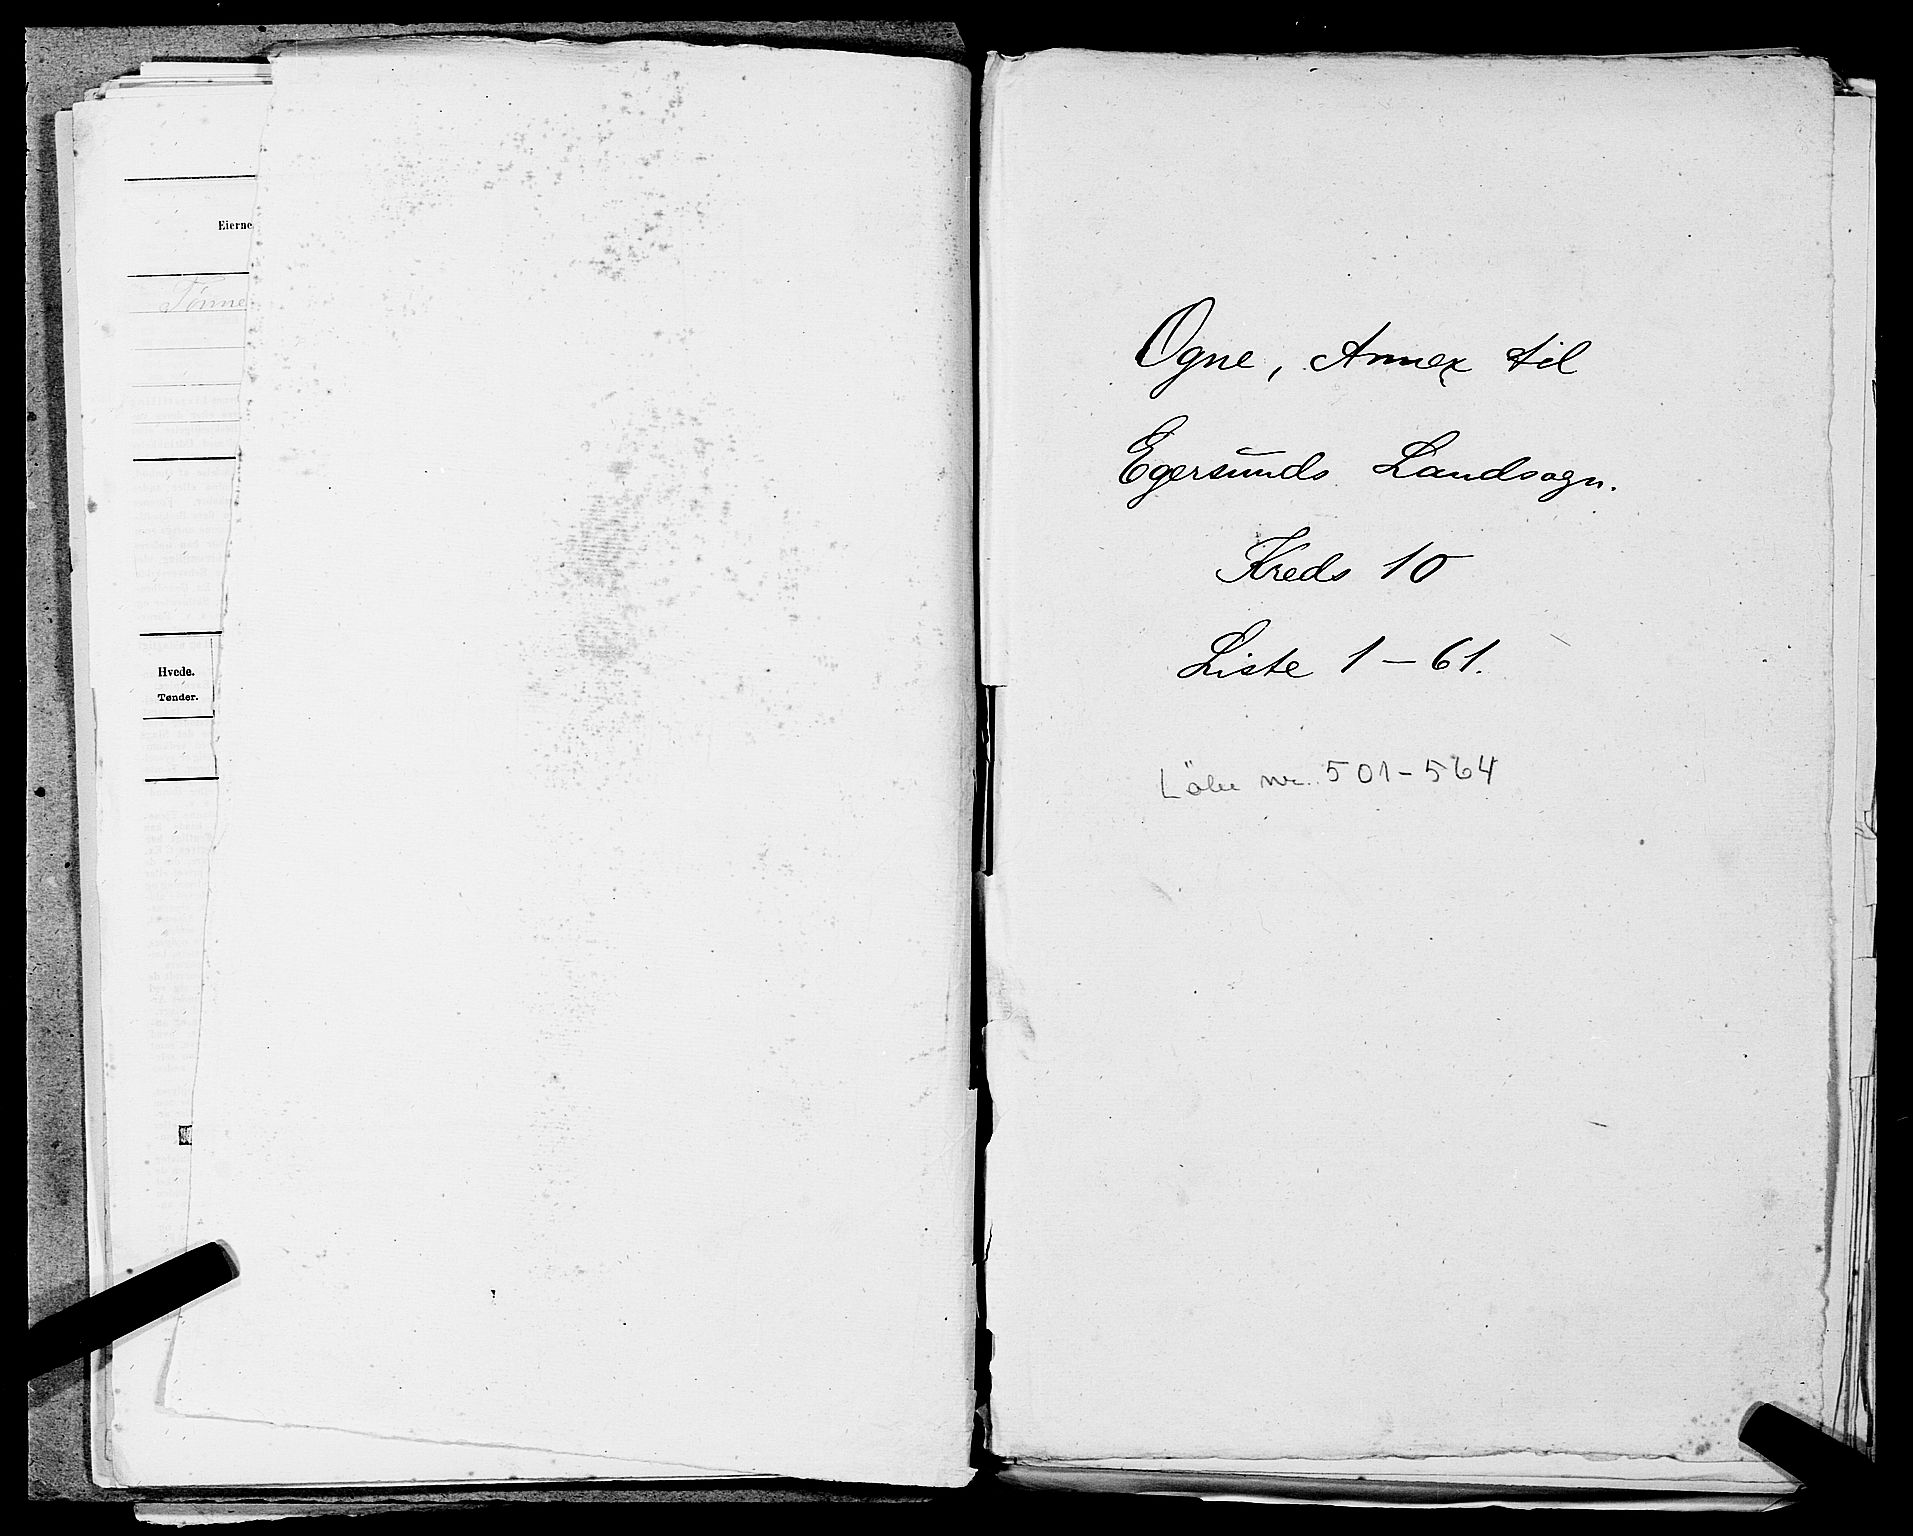 Eierne
Tønne
Hvede.
Tønder.
Ogne, Annex til
Egersunds Landsogn.
Kreds 10
Liste 1 - 61.
Löbe nr. 501-564